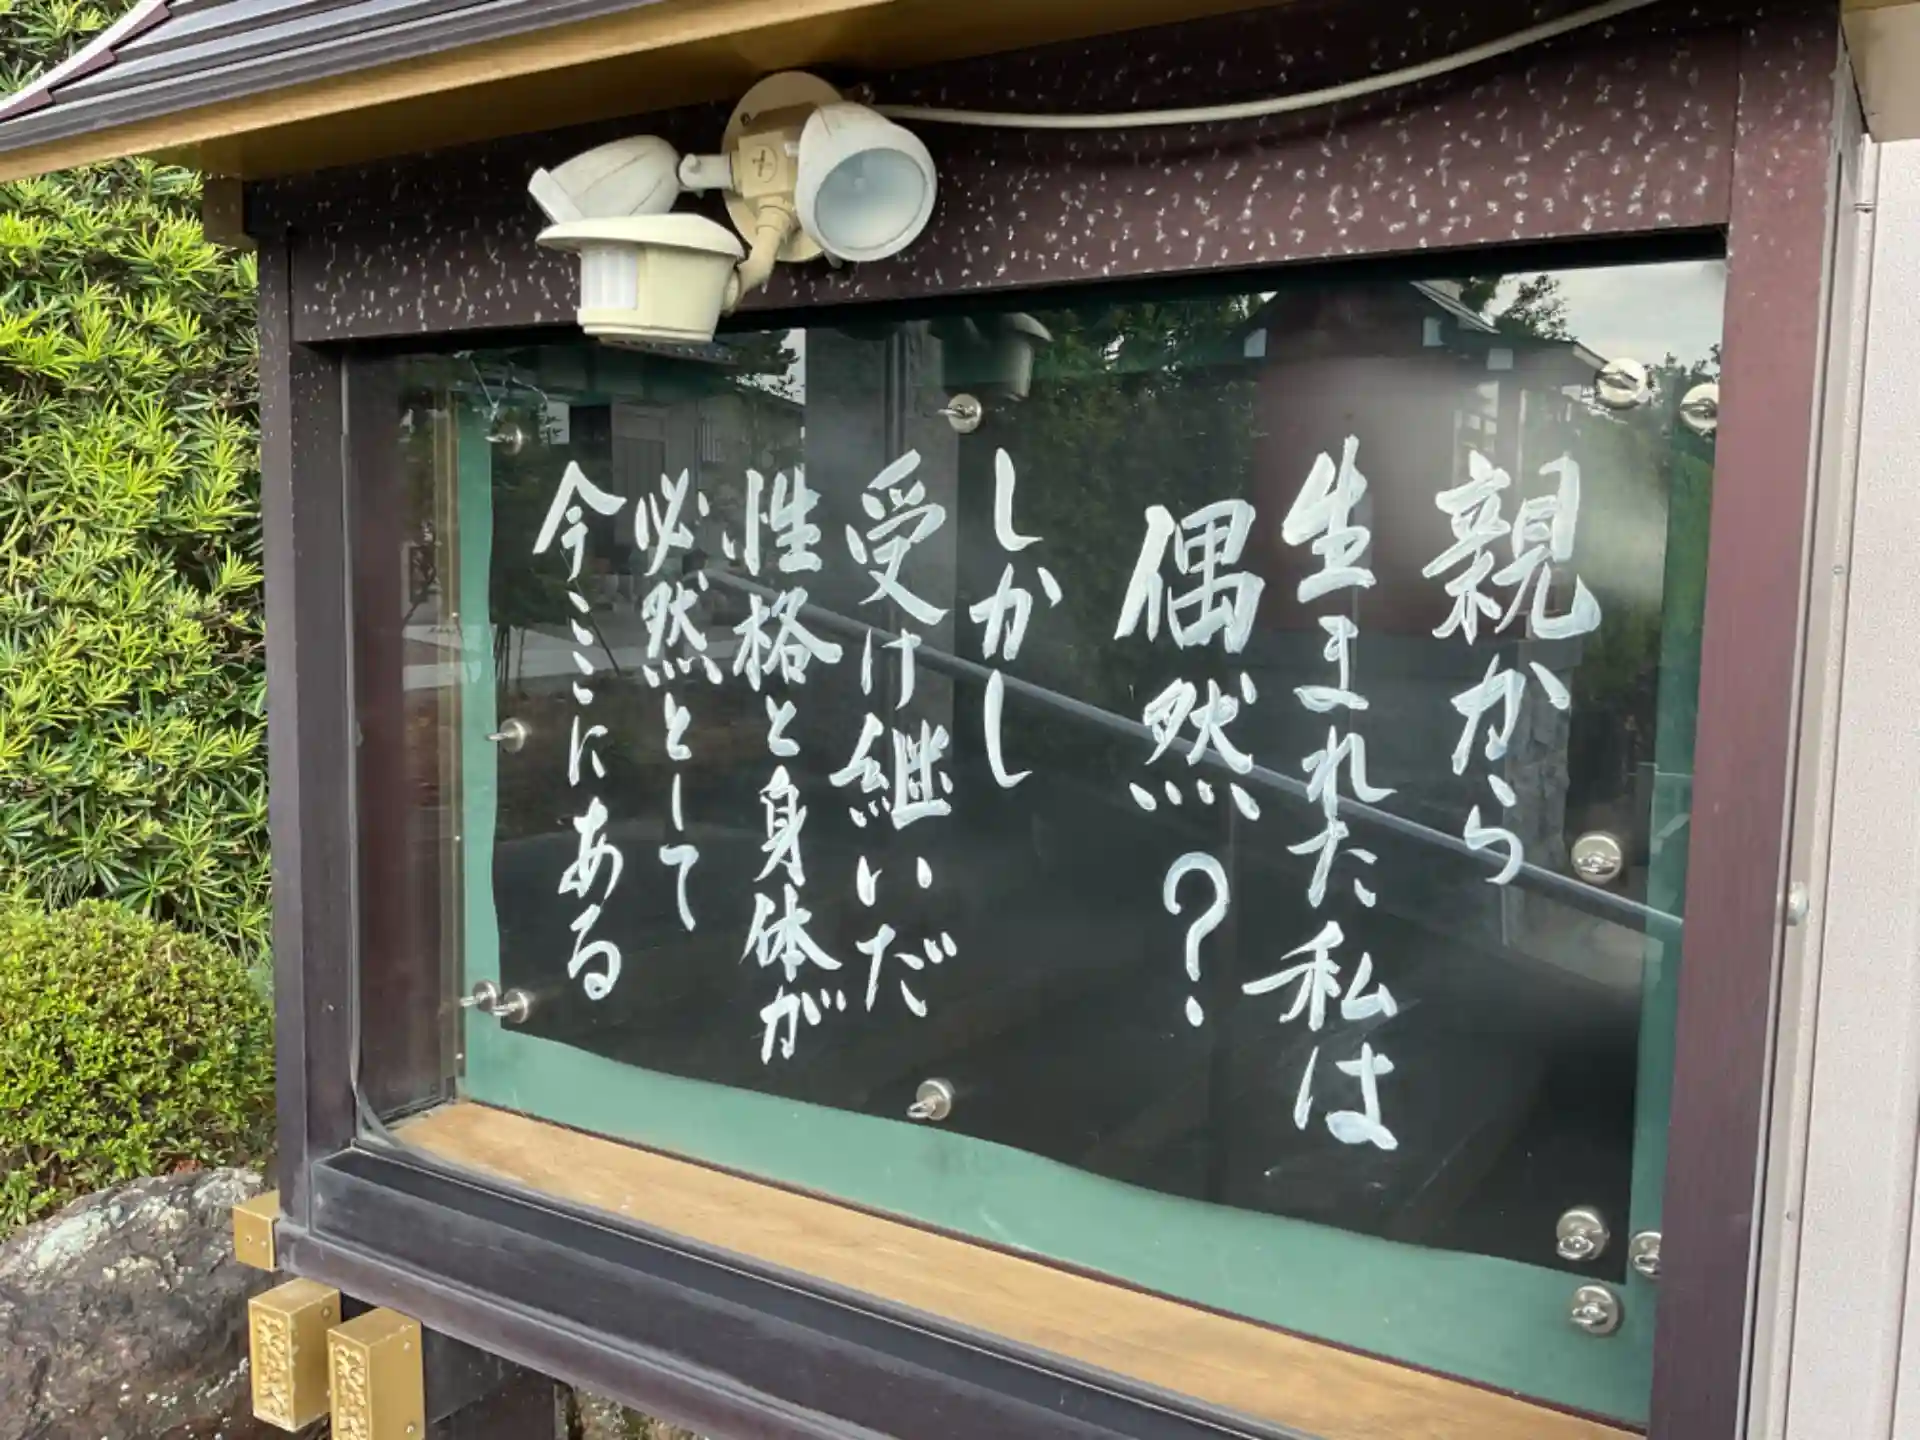 親から
生まれた私は
偶然？
しかし
受け継いだ
性格と身体が
必然として
今ここにある